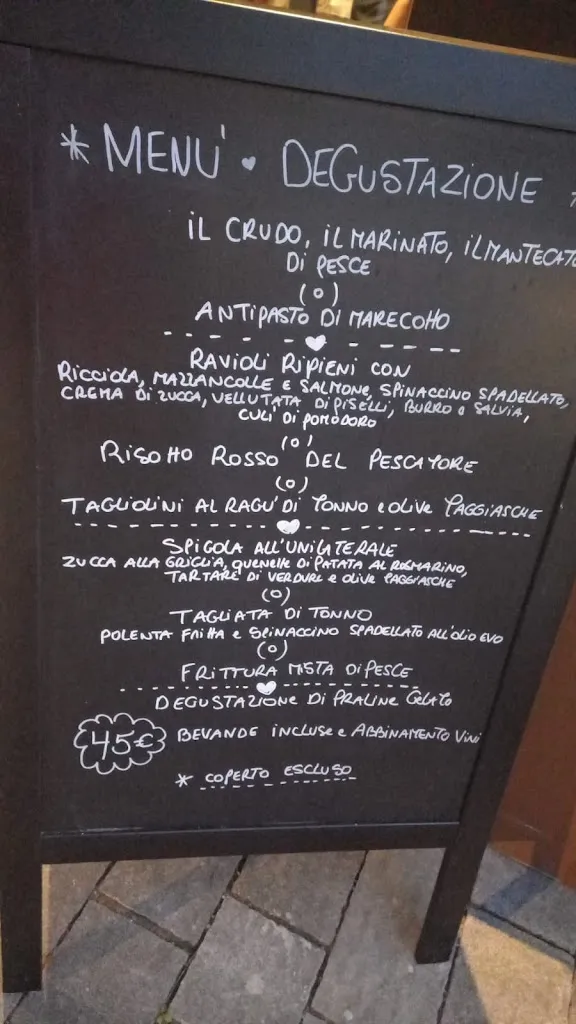 * MENU' ♥ DEGUSTAZIONE *
IL CRUDO, IL MARINATO, IL MANTECATO
DI PESCE
(O)
ANTIPASTO DI MARECOTTO
RAVIOLI RIPIENI CON
RICCIOLA, MAZZANCOLLE E SALMONE, SPINACCINO SPADELLATO,
CREMA DI ZUCCA, VELLUTATA DI PISELLI, BURRO e SALVIA,
CULÌ DI POMODORO
(O)
RISOTTO ROSSO DEL PESCATORE
(O)
TAGLIOLINI AL RAGU' DI TONNO e olive TAGGIASCHE
SPIGOLA ALL'UNILATERALE
ZUCCA ALLA GRIGLIA, quenelle DI PATATA AL ROSMARINO,
TARTARE DI VERDURE e olive TAGGIASCHE
(O)
TAGLIATA DI TONNO
POLENTA FRITTA e SPINACCINO SPADELLATO ALL'OLIO EVO
(O)
FRITTURA MISTA DI PESCE
DEGUSTAZIONE DI PRALINE GELATO
45€ BEVANDE INCLUSE e ABBINAMENTO VINI
* COPERTO ESCLUSO